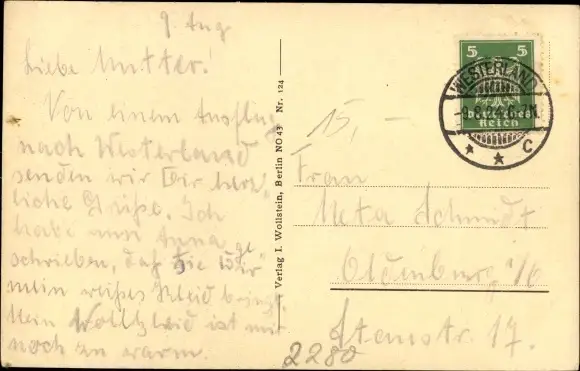 9. Aug
Liebe Mutter!
Von einem Ausflug
nach Westerland
senden wir Dir herz-
liche Grüße. Ich
habe nun Anna ge-
schrieben, daß sie
mein weißes Kleid bringt.
Mein Wollkleid ist mir
noch zu warm.
Verlag I. Wollstein, Berlin NO 43 Nr. 124
5 5
Deutsches
Reich
WESTERLAND
C
15,-
Frau
Meta Schmidt
Oldenburg i/O
Steinstr. 17.
2280